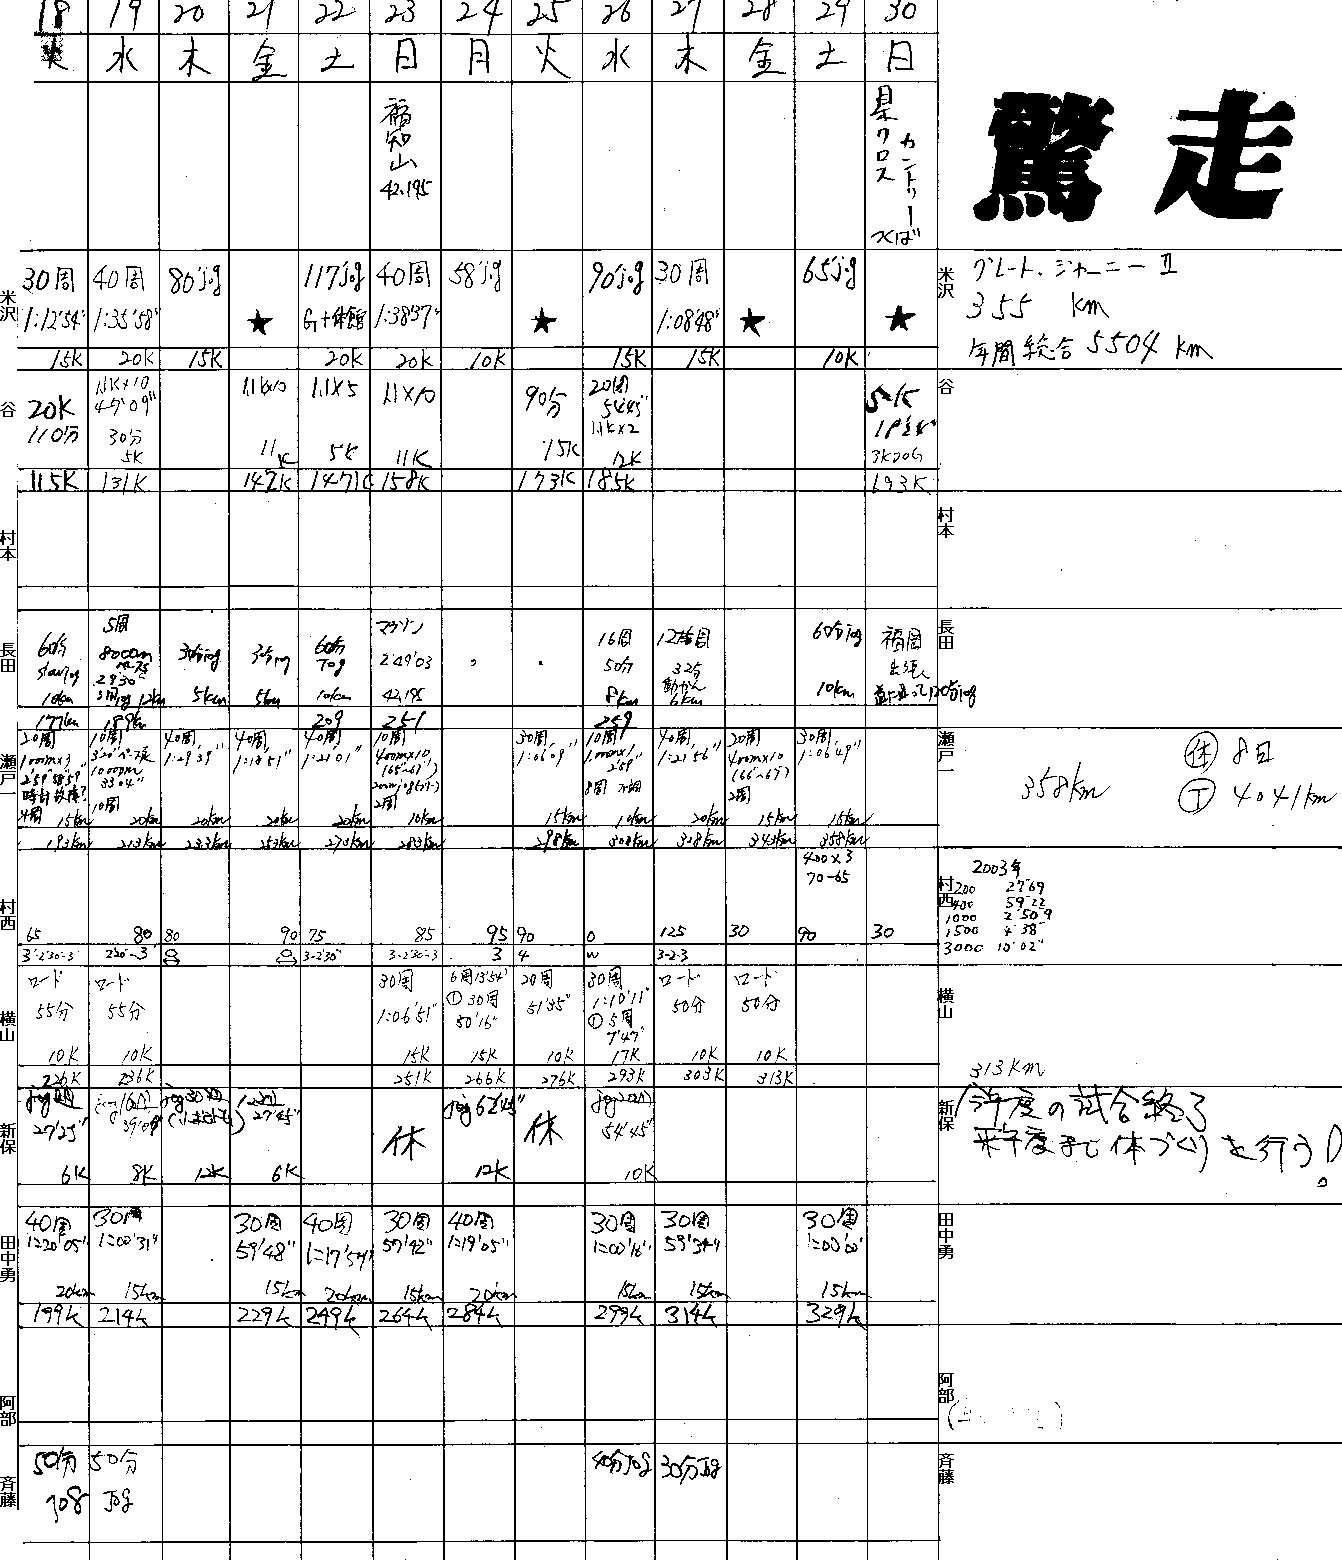 18 19 20 21 22 23 24 25 26 27 28 29 30
火 水 木 金 土 日 月 火 水 木 金 土 日
福知山
42.195
県クロス
カントリー
つくば
驚走
米沢
30周 40周 80'jog 117'jog 40周 58'jog 90'jog 30周 65'jog
1:12'54" 1:35'58" ★ G+体館 1:38'37" ★ 1:08'48" ★ ★
15K 20K 15K 20K 20K 10K 15K 15K 10K
米沢
グレート・ジャーニーII
355 km
年間総合 5504 km
谷
20K 1.1K×10 1.1K×10 1.1×5 1.1×10 90分 20周 5K
110分 47'09" 54'45"
30分 1.1K×2
5K 11K 5K 11K 15K 12K
115K 131K 142K 147K 158K 173K 185K 193K
谷
村本
村本
長田
60分 5周 30分jog 60分 マラソン 16周 60分jog 福岡
slowjog 8000m Jog 2'49'03 50分 32分
29'30"
10km 12km 5km 5km 10km 42.195 8km 6km 10km
177km 189km 209 251 259
長田
瀬戸一
20周 10周 40周 40周 40周 10周 30周 10周 40周 20周 30周
1000m×3 1:29'39" 1:21'01" 400m×10 1:06'09" 1:21'56" 400m×10 1:06'49"
時計故障?
4周 10周 2周 8周 2周
15km 20km 20km 20km 20km 10km 15km 10km 20km 15km 15km
193km 213km 233km 253km 273km 283km 298km 308km 343km 358km
瀬戸一
358km
休 8日
T 4041km
村西
400×3
70-65
65 80 80 90 75 85 95 90 0 125 30 90 30
3'-2'30-3 2'30'-3 3-2'30" 3-2'30-3 3 4 w 3-2-3
村西
2003年
200 27"69
400 59"22
1000 2'50"9
1500 4'38"
3000 10'02"
横山
ロード ロード 30周 6周13'54" 20周 30周 ロード ロード
55分 55分 1:06'51" T 30周 51'35" 1:10'11" 50分 50分
50'16" T 5周
7'47"
10K 10K 15K 15K 10K 17K 10K 10K
226K 236K 251K 266K 276K 293K 303K 313K
横山
313km
新保
27'25" 39'09" 27'45" 休 休 54'45"
6K 8K 12K 6K 12K 10K
新保
今年度の試合終了
来年度まで体づくりを行う!
田中勇
40周 30周 30周 40周 30周 40周 30周 30周 30周
1:20'05" 1:00'31" 59'48" 1:17'57" 57'42" 1:19'05" 1:00'16" 59'34" 1:00'00"
20km 15km 15km 20km 15km 20km 15km 15km 15km
199k 214k 229k 249k 264k 284k 299k 314k 329k
田中勇
阿部
阿部
斉藤
50分 50分 40分Jog 30分Jog
Jog Jog
斉藤